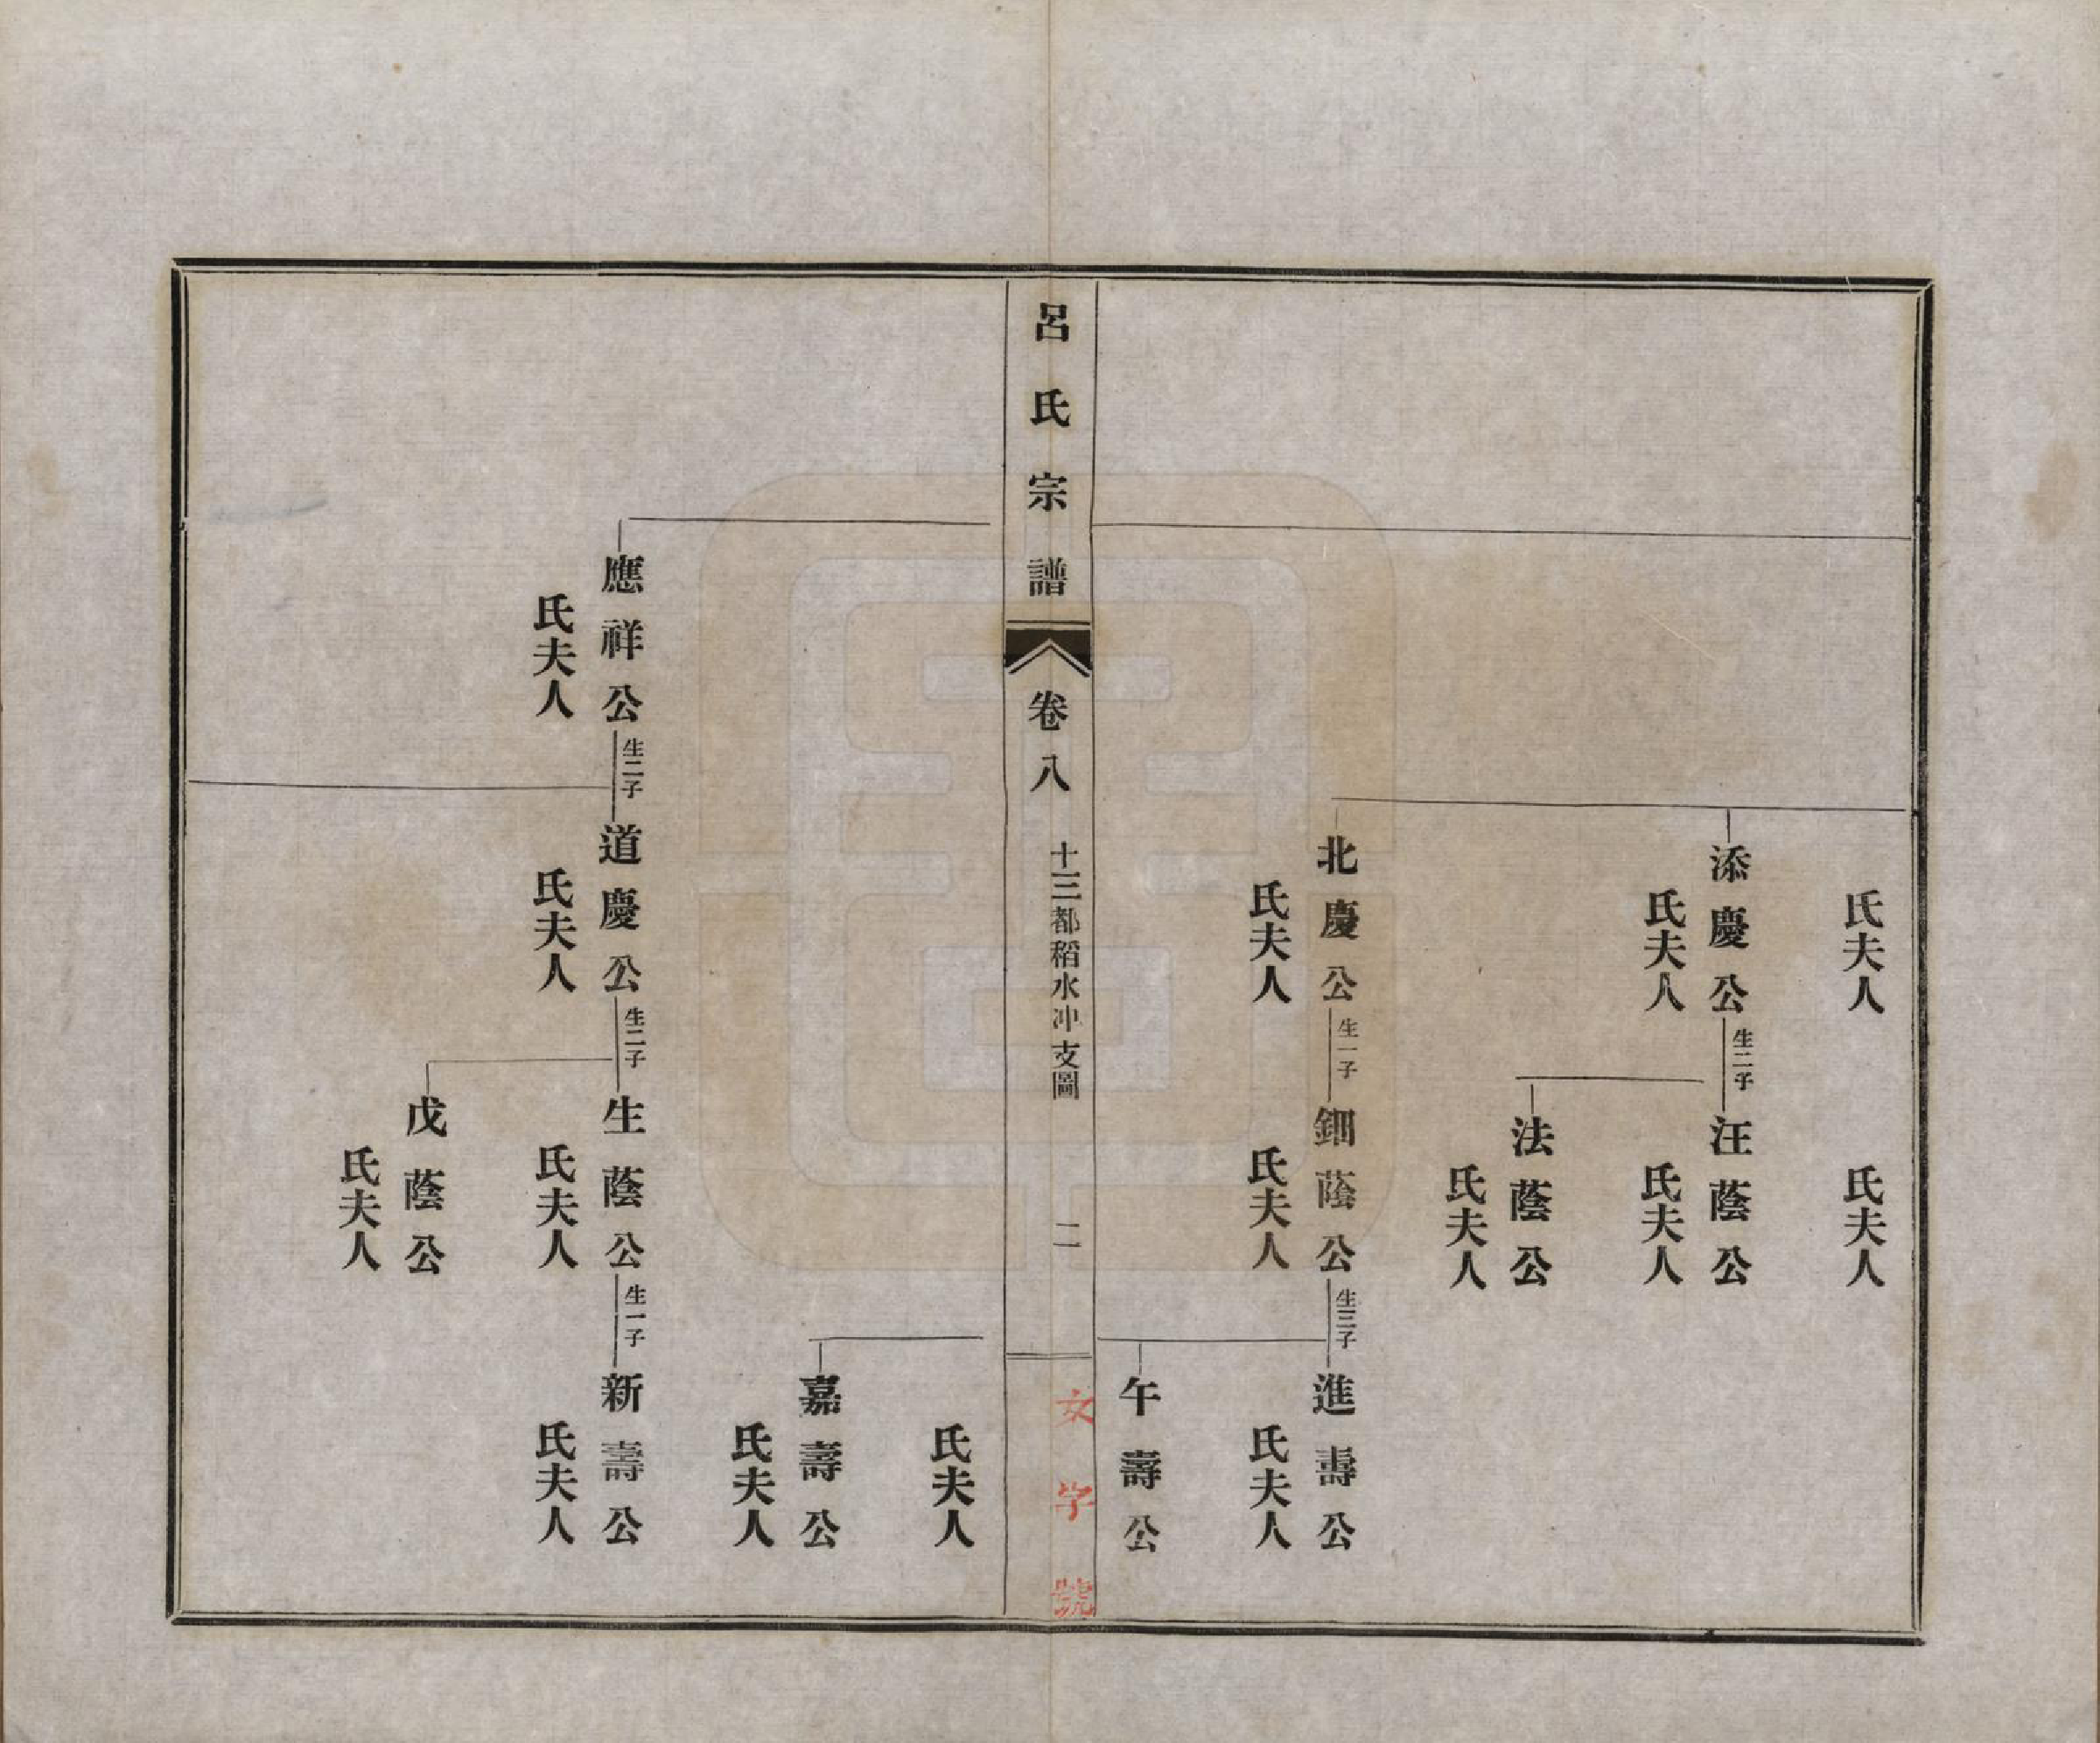 氏夫人
氏夫人
添慶公
生二子
汪蔭公
氏夫人
氏夫人
法蔭公
氏夫人
北慶公
生一子
鈿蔭公
生三子
進壽公
氏夫人
氏夫人
氏夫人
午壽公
呂氏宗譜
卷八
十三都稻水冲支圖
二
文字號
氏夫人
嘉壽公
氏夫人
應祥公
生二子
道慶公
生二子
生蔭公
生一子
新壽公
氏夫人
氏夫人
氏夫人
氏夫人
戊蔭公
氏夫人